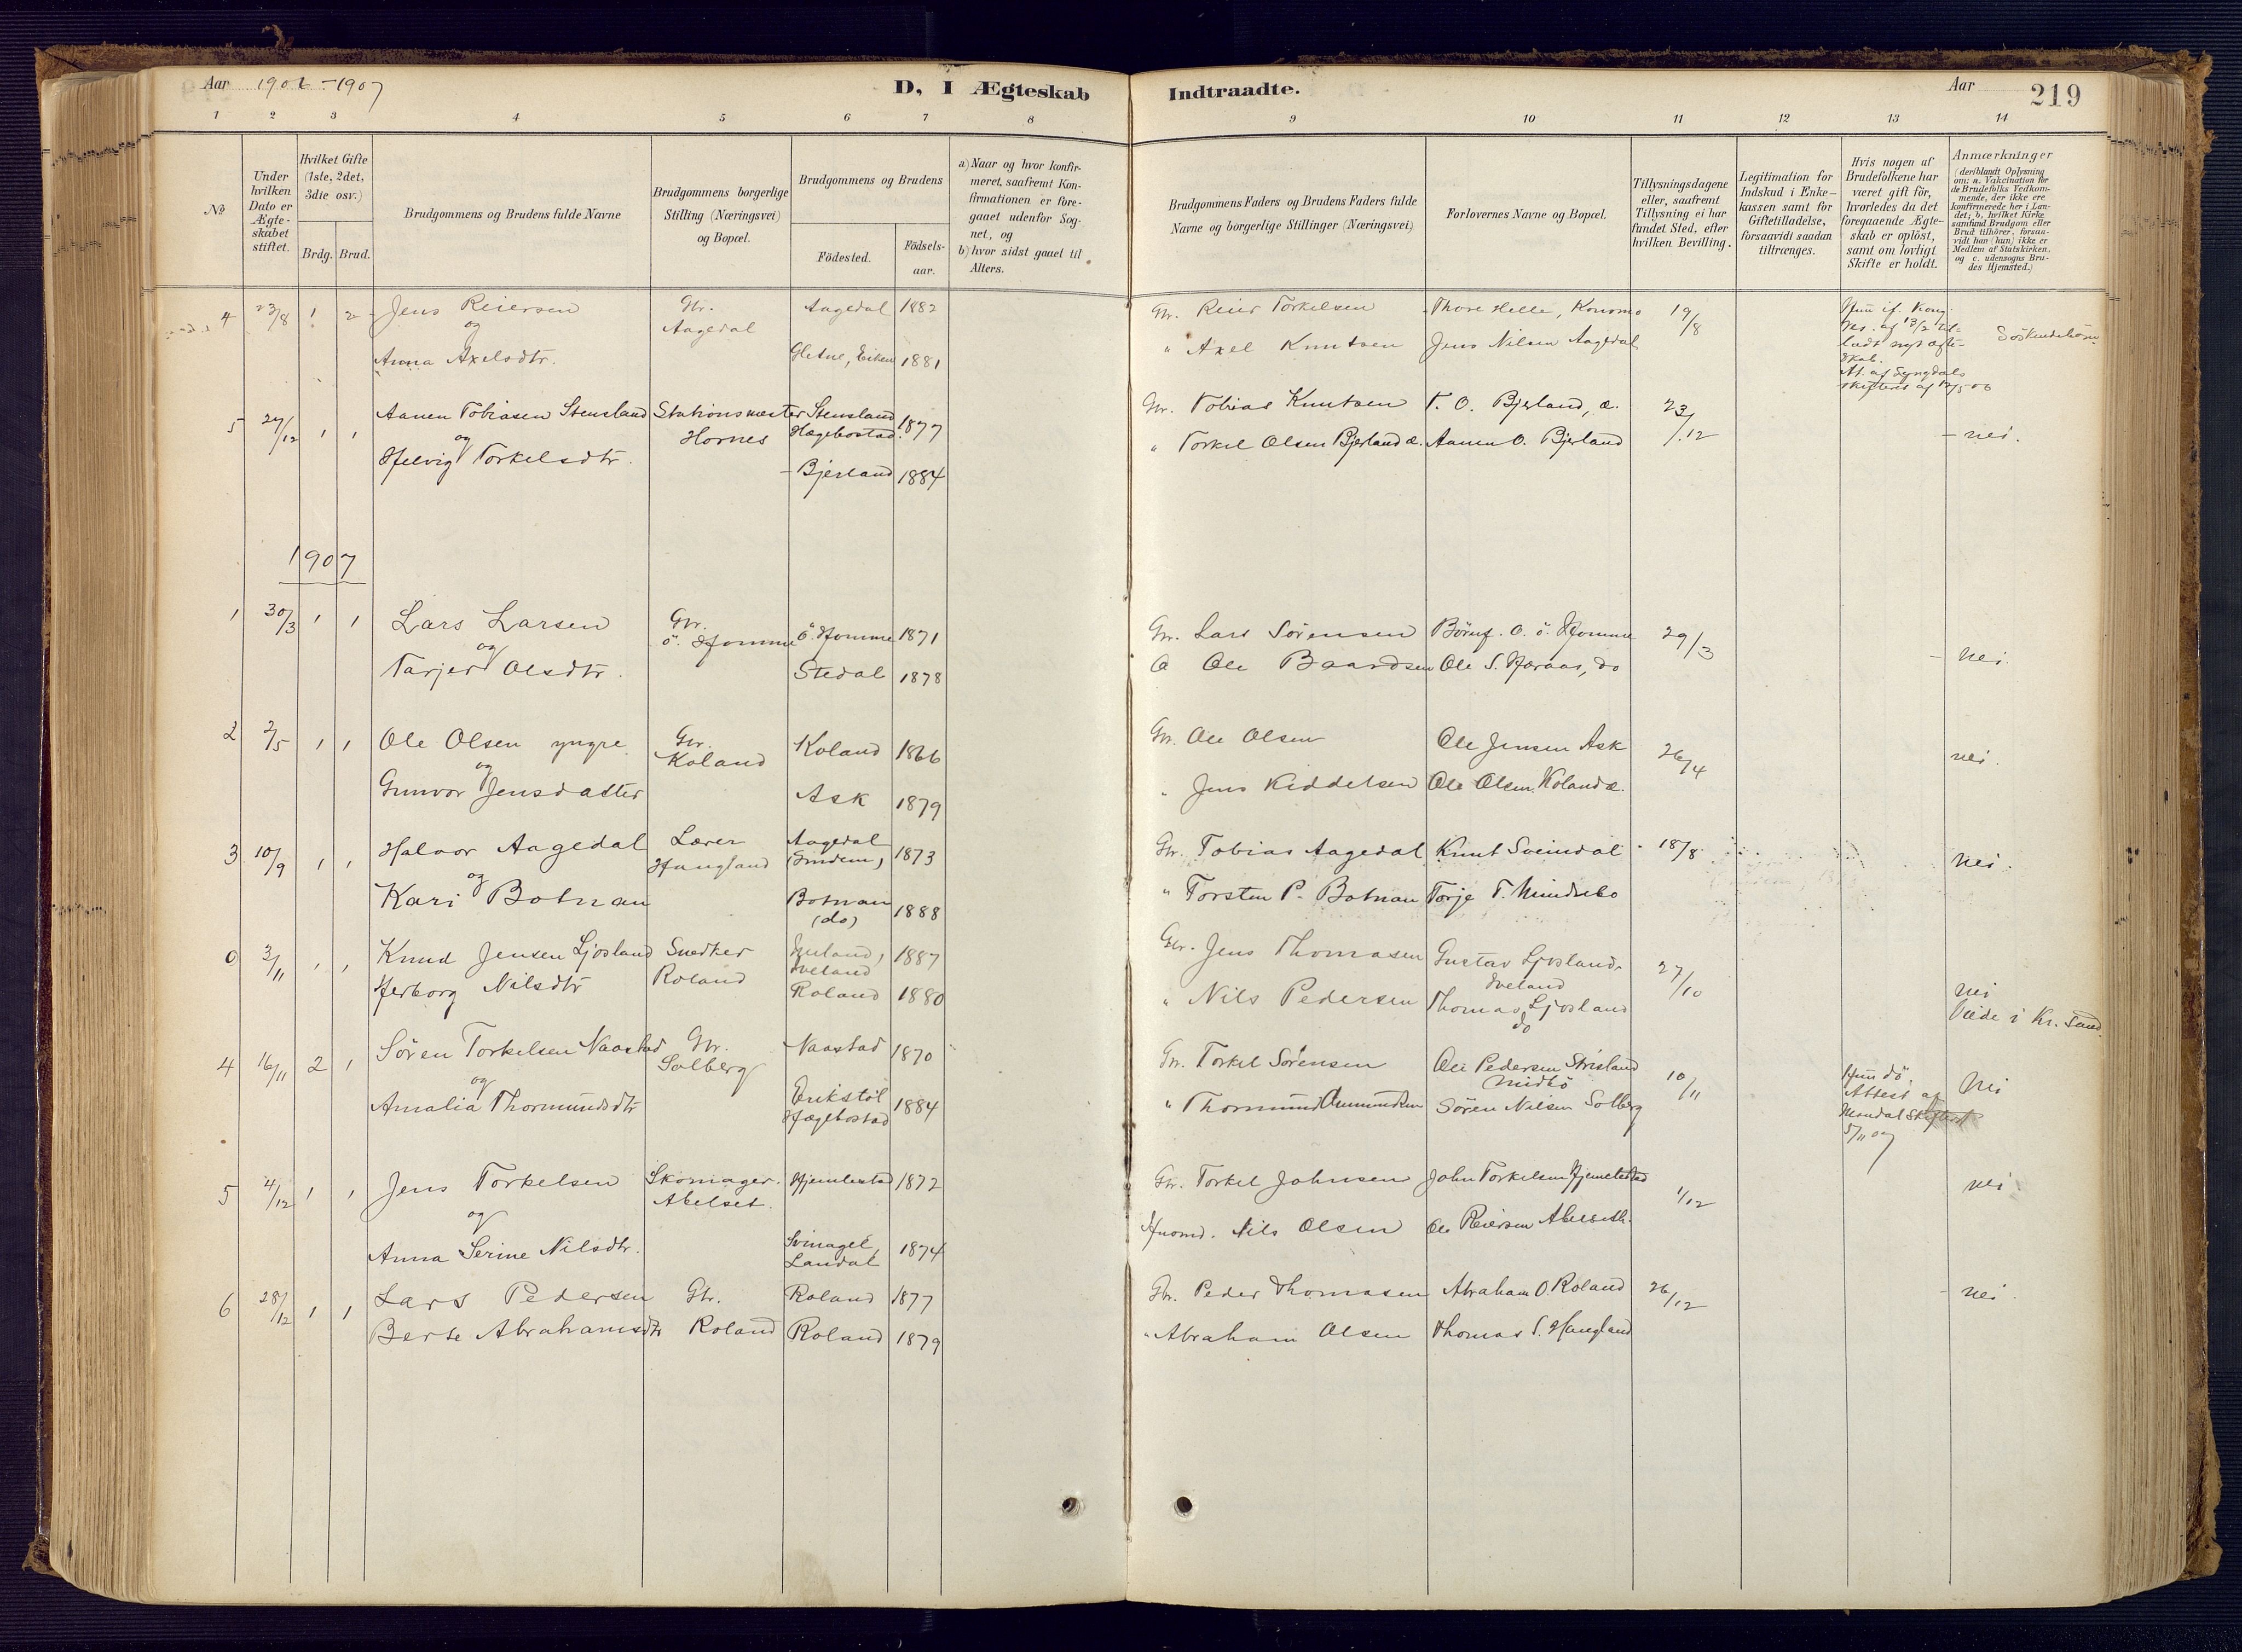 Aar 1906-1907
D, I Ægteskab Indtraadte.
Aar
219
1 2 3 4 5 6 7 8 9 10 11 12 13 14
No
Under hvilken Dato er Ægte-skabet stiftet.
Hvilket Gifte (1ste, 2det, 3die osv.)
Brdg. Brud.
Brudgommens og Brudens fulde Navne
Brudgommens borgerlige Stilling (Næringsvei) og Bopæl.
Brudgommens og Brudens
Födested.
Födsels-aar.
a) Naar og hvor konfir-meret, saafremt Kon-firmationen er fore-gaaet udenfor Sog-net, og
b) hvor sidst gaaet til Alters.
Brudgommens Faders og Brudens Faders fulde Navne og borgerlige Stillinger (Næringsvei)
Forlovernes Navne og Bopæl.
Tillysningsdagene eller, saafremt Tillysning ei har fundet Sted, efter hvilken Bevilling.
Legitimation for Indskud i Enke-kassen samt for Giftetilladelse, forsaavidt saadan tiltrænges.
Hvis nogen af Brudefolkene har været gift för, hvorledes da det foregaaende Ægte-skab er oplöst, samt om lovligt Skifte er holdt.
Anmærkninger (deriblandt Oplysning om: a. Vakcination for de Brudefolks Vedkom-mende, der ikke ere konfirmerede her i Lan-det; b. hvilket Kirke samfund Brudgom eller Brud tilhörer, forsaa-vidt han (hun) ikke er Medlem af Statskirken, og c. udensogns Bru-des Hjemsted.)
4 23/8 1 2 Jens Reiersen Gbr. Aagedal 1882 Gbr. Reier Torkelsen Thore Helle, Konsmo 19/8
og Aagedal
Anna Axelsdtr. Eiken 1881 " Axel Knutsen Jens Nilsen Aagedal
Söskendebörn
5 27/12 1 1 Aanen Tobiasen Stensland Stationsmester Stensland Hægebostad. 1877 Gbr. Tobias Knutsen T. O. Bjerland, æ. 23/12
og Hornes
Helvig Torkelsdtr. Bjerland 1884 " Torkel Olsen Bjerland æ. Aanen O. Bjerland - nei.
1907
1 30/3 1 1 Lars Larsen Gbr. ö. Homme ö. Homme 1871 Gbr. Lars Sörensen O. ö. Homme 29/3
og
Tarjer Olsdtr. Stedal 1878 Ole Baardsen Ole S. Haraas, do - nei.
2 2/5 1 1 Ole Olsen yngre Gbr. Koland Koland 1866 Gbr. Ole Olsen Ole Jensen Ask 26/4 nei.
og
Gunvor Jensdatter Ask 1879 " Jens Kiddelsen Ole Olsen Koland æ.
3 10/9 1 1 Halvor Aagedal Lærer Haugland Aagedal 1873 Gbr. Tobias Aagedal Knut Sveindal 18/8 nei.
og
Kari Botnan Botnan (do) 1888 " Torsten P. Botnan Torje T.
0 3/11 1 1 Knud Jensen Ljosland Snedker Roland Iveland 1887 Gbr. Jens Thomasen Gustav Ljosland Iveland 27/10
Herborg Nilsdtr Roland 1880 " Nils Pedersen Thomas Ljosland do nei
Viede i Kr. Sand
4 16/11 2 1 Sören Torkelsen Naastad Gbr. Solberg Naastad 1870 Gbr. Torkel Sörensen Ole Pedersen Midbö 10/11
og
Amalia Thormundsdtr Erikstöl Hægebostad 1884 " Thormund Sören Nilsen Solberg
Hun dö. Attest af Mandal Skifteret 5/11 07
Nei
5 4/12 1 1 Jens Torkelsen Skomager. Abelset. Hjemlestad 1872 Gbr. Torkel Johnsen John Torkelsen Hjemlestad 1/12 nei.
og
Anna Serine Nilsdtr. Laudal 1874 Husmd. Nils Olsen Ole Reiersen
6 28/12 1 1 Lars Pedersen Gbr. Roland 1877 Gbr. Peder Thomasen Abraham O. Roland 26/12 - nei.
Berte Abrahamsdtr Roland Roland 1879 " Abraham Olsen Thomas S. Haugland